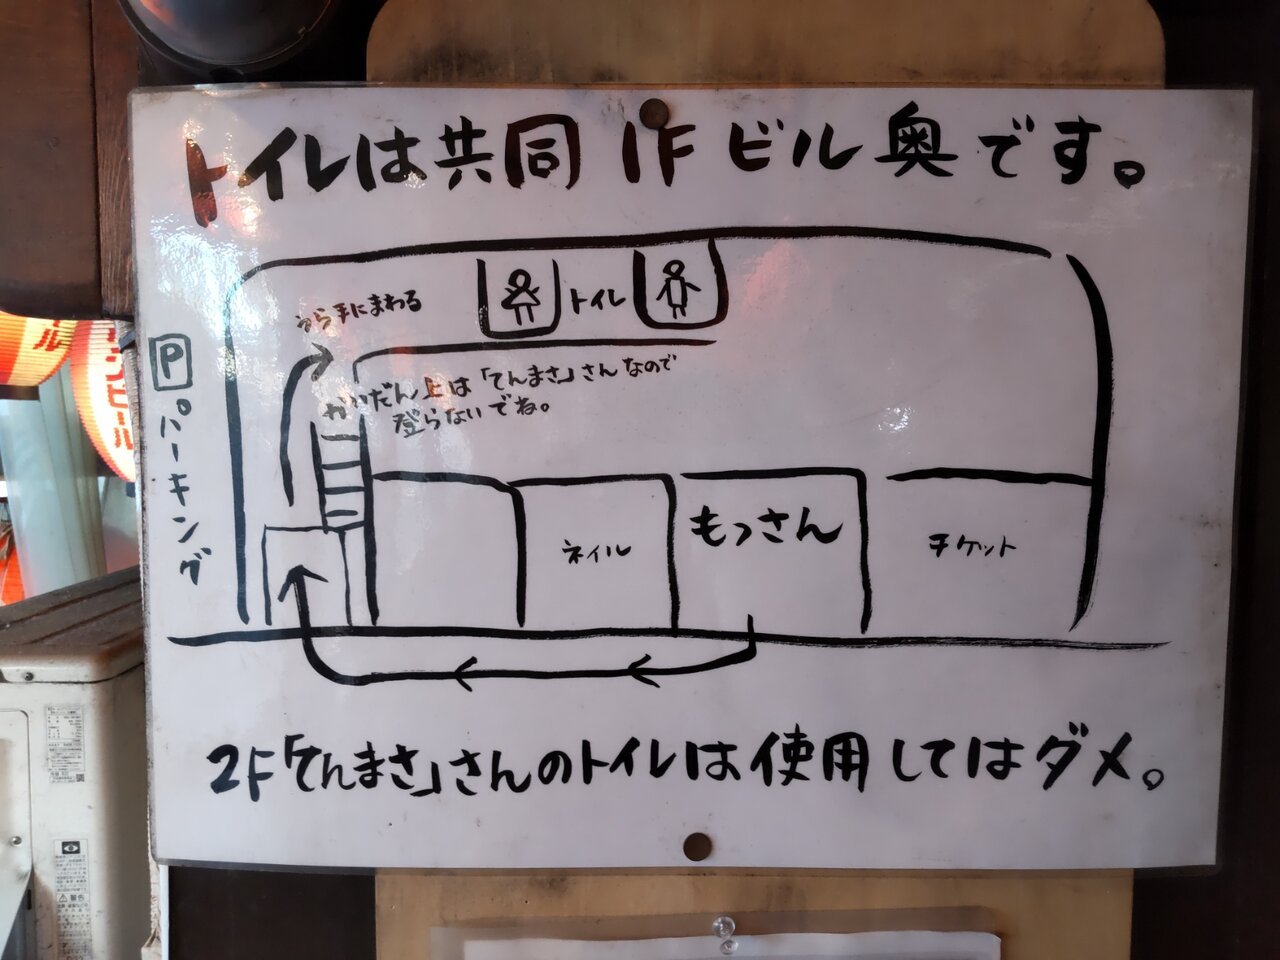 トイレは共同 1Fビル奥です。
トイレ
うら手にまわる
P
パーキング
かいだん上は「てんまさ」さんなので
登らないでね。
ネイル
もっさん
チケット
2F「てんまさ」さんのトイレは使用してはダメ。
ル
ビール
警告